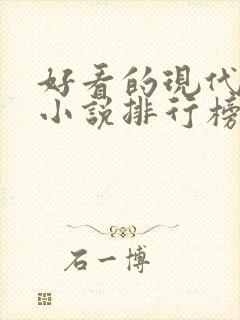 好看的现代
小说排行榜
石一博